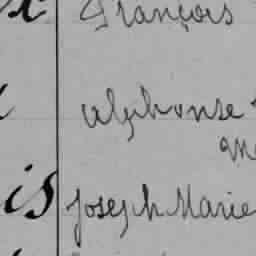 François
Alphonse
is Joseph Marie